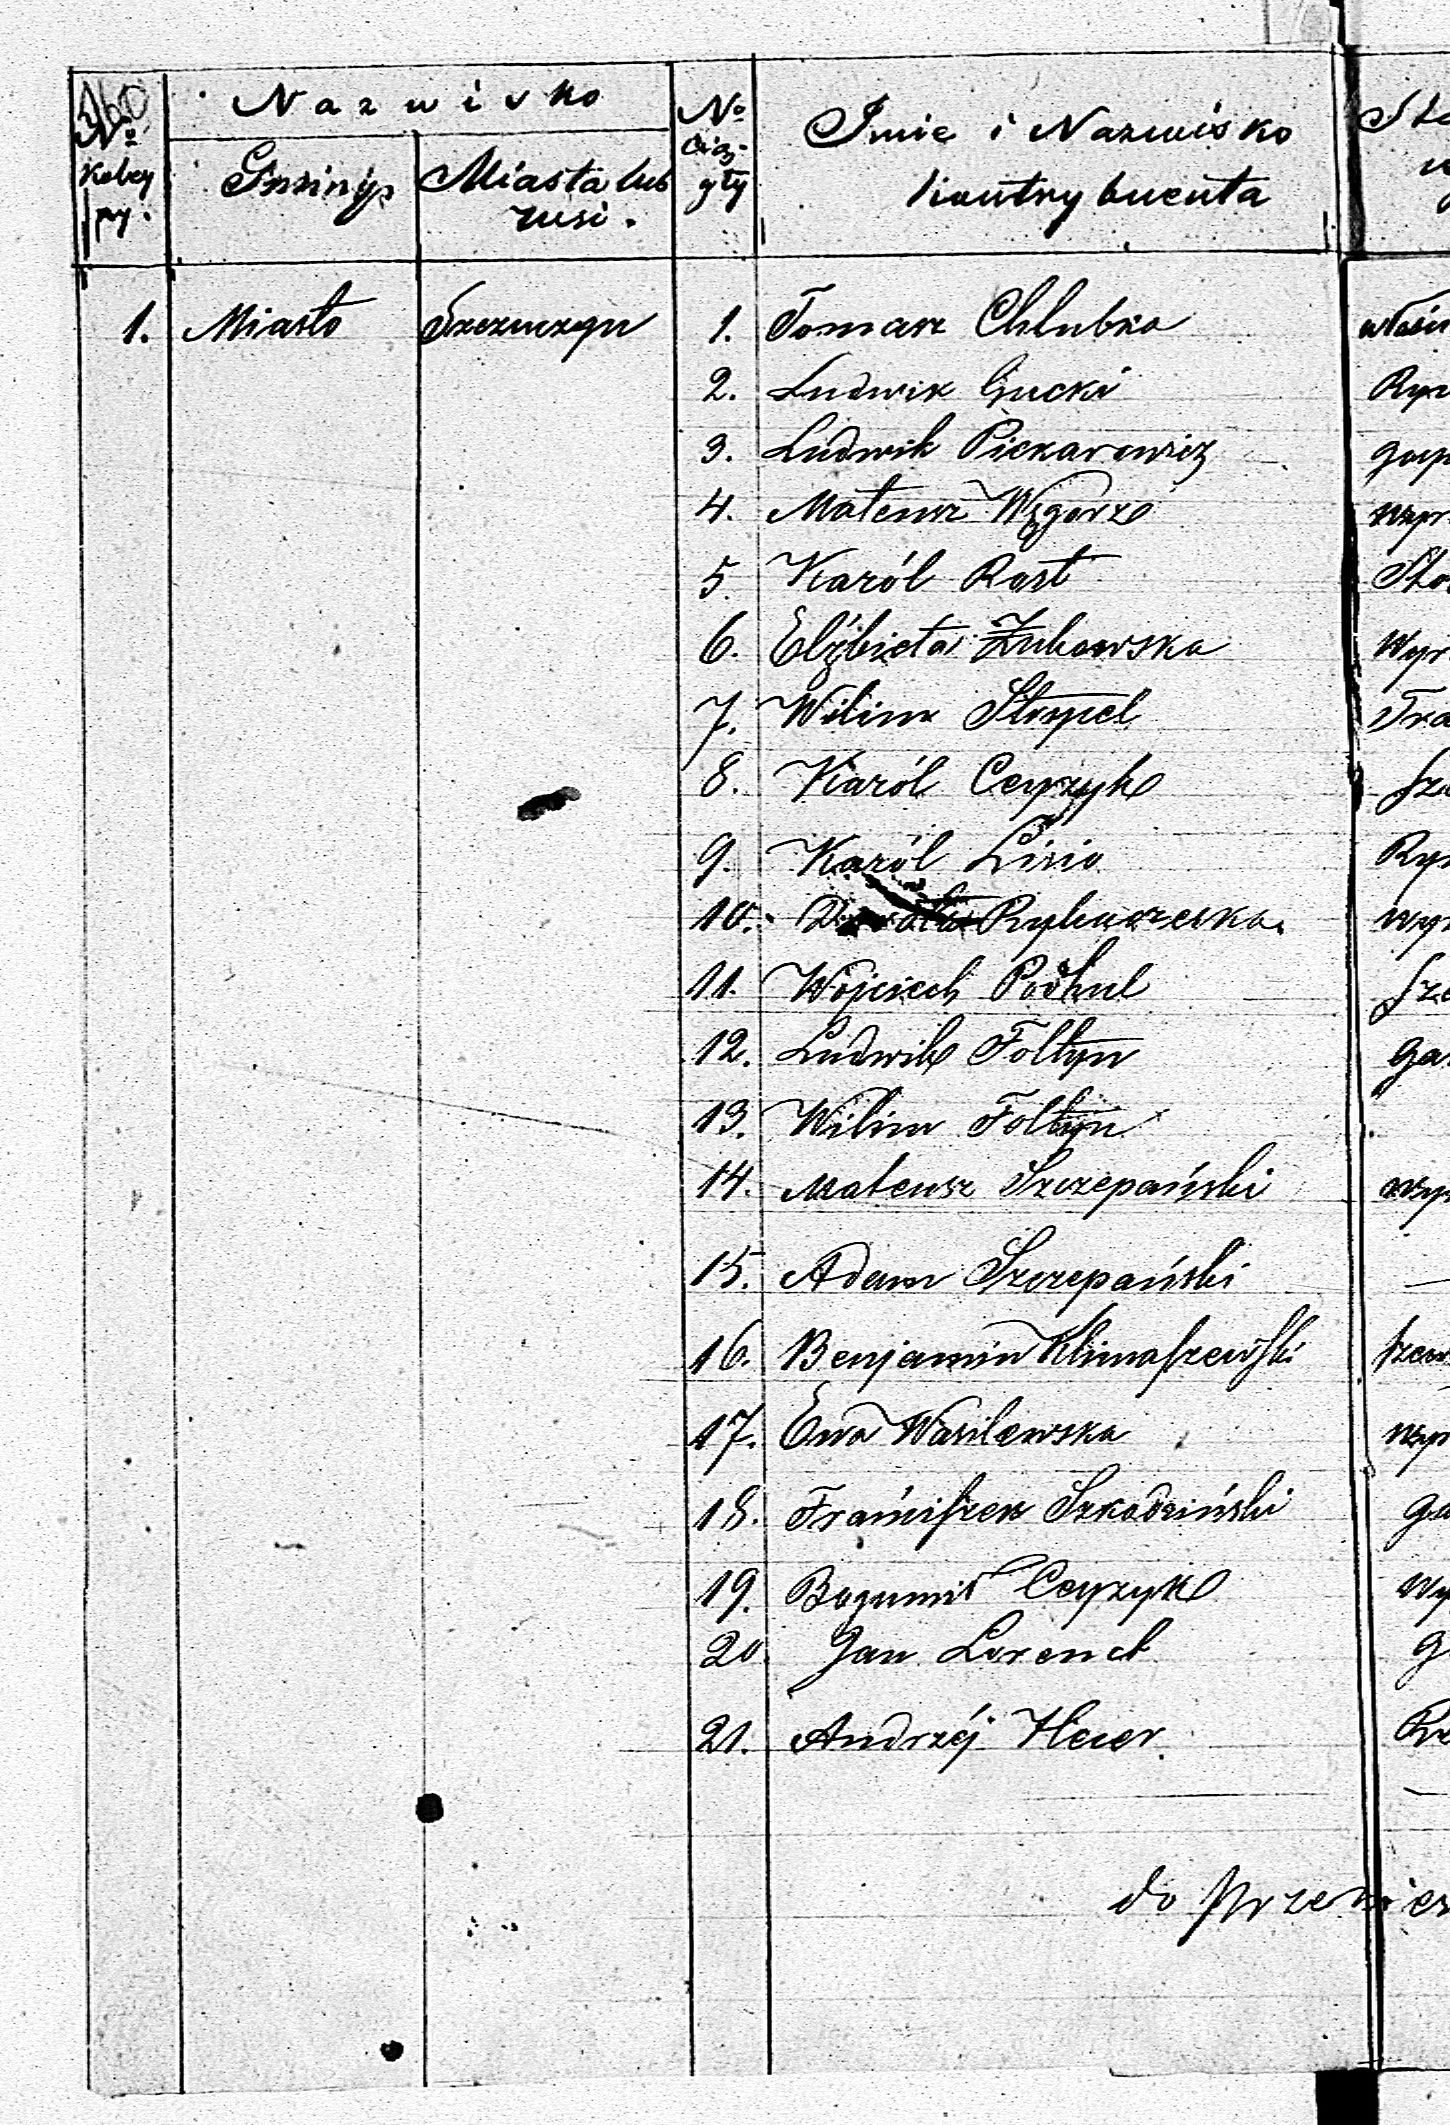 360
Nazwisko
№ kolejny.
Gminy
Miasta lub wsi.
№ ciągły
Imie i Nazwisko
kontrybuenta
1. Miasto Szczuczyn 1. Tomasz Chlubko
2. Ludwik Gucki
3. Ludwik Piekarowicz
4. Mateusz Węgorz
5. Karól Rost
6. Elżbieta Żukowska
7. Wilim Stempel
8. Karól Ceyzyk
9. Karól Lisio
10. Rykaczeska
11. Wojciech Poohul
12. Ludwik Foltyn
13. Wilim Foltyn
14. Mateusz Szczepański
15. Adam Szczepański
16. Benjamin Klimaszewski
17. Ewa Wasilewska
18. Franciszek Szkodziński
19. Bogumił Ceyzyk
20. Jan Lorenct
21. Andrzéj Heier
do przenies